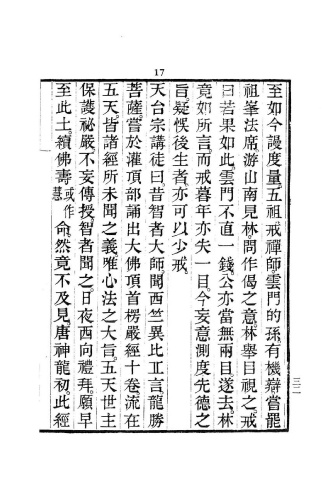 17
至如今謾度量。五祖戒禪師雲門的孫有機辯嘗罷
祖峯法席。游山南見林問作偈之意。林舉目視之。戒
曰若果如此。雲門不直一錢。公亦當無兩目。遂去。林
竟如所言。而戒暮年亦失一目。今妄意測度先德之
旨。疑悞後生者。亦可以少戒。
天台宗講徒曰。昔智者大師。聞西竺異比丘言。龍勝
菩薩。嘗於灌頂部。誦出大佛頂首楞嚴經十卷。流在
五天。皆諸經所未聞之義。唯心法之大旨。五天世主。
保護祕嚴。不妄傳授。智者聞之。日夜西向禮拜。願早
至此土。續佛壽或作慧命。然竟不及見。唐神龍初。此經
三二